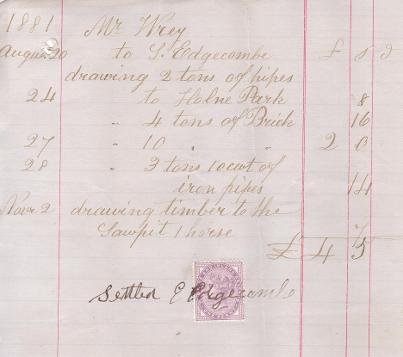 1881 Mr Wrey
August 20 to S. Edgecombe £ s d
drawing 2 tons of pipes
24 to Holne Park 8
" 4 tons of Brick 16
27 " 10 " " 2 0
28 " 3 tons 10 cwt of
iron pipes 14
Novr 2 drawing timber to the
Sawpit 1 horse 7
£ 4 5
Settled E Edgecombe